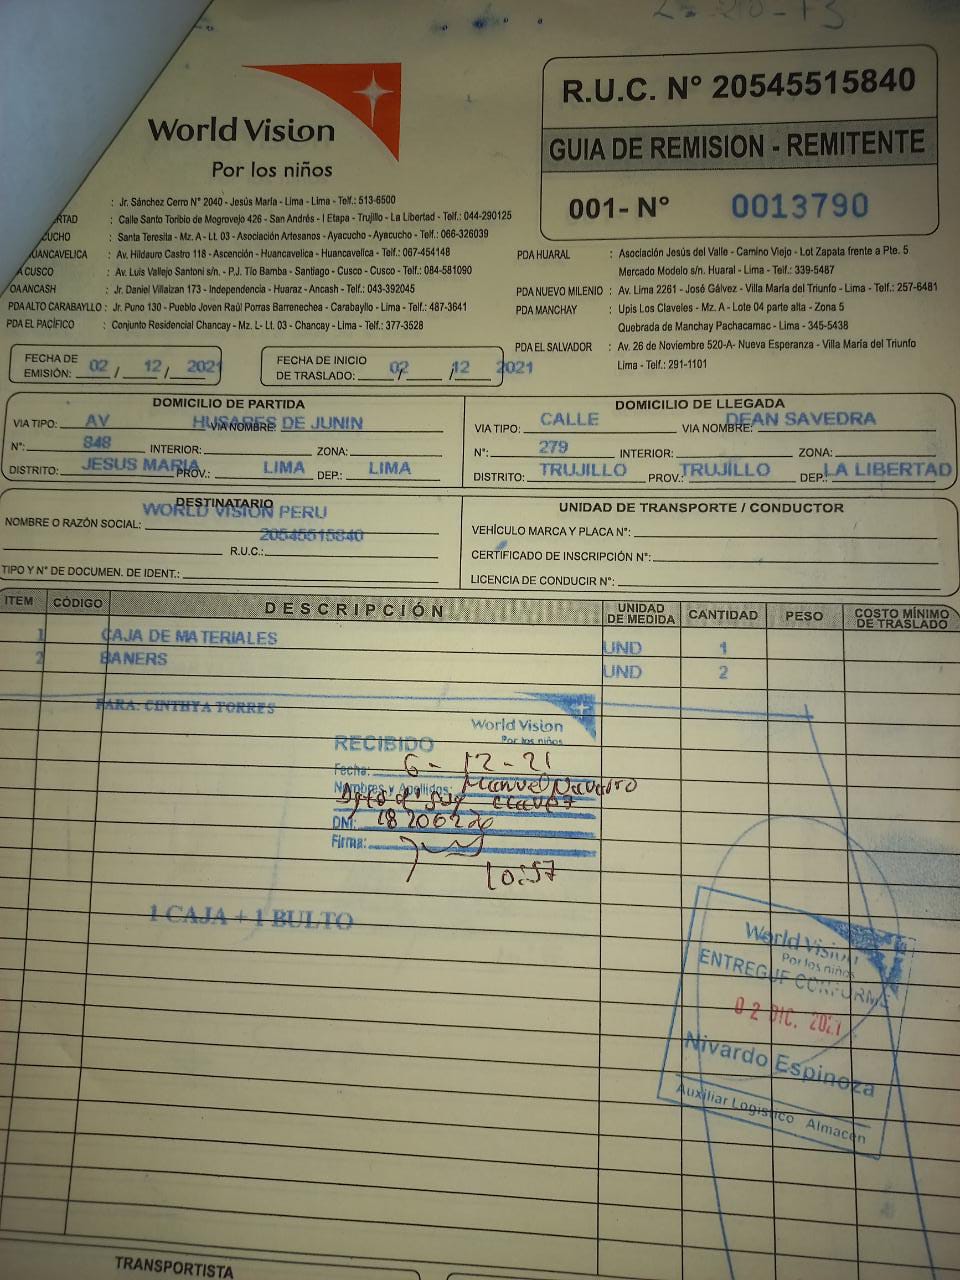 World Vision
Por los niños
R.U.C. N° 20545515840
GUIA DE REMISION - REMITENTE
001- N° 0013790
: Jr. Sánchez Cerro N° 2040 - Jesús María - Lima - Lima - Telf.: 513-6500
RTAD : Calle Santo Toribio de Mogrovejo 426 - San Andrés - I Etapa - Trujillo - La Libertad - Telf.: 044-290125
CUCHO : Santa Teresita - Mz. A - Lt. 03 - Asociación Artesanos - Ayacucho - Ayacucho - Telf.: 066-326039
HUANCAVELICA : Av. Hildauro Castro 118 - Ascención - Huancavelica - Huancavelica - Telf.: 067-454148
A CUSCO : Av. Luis Vallejo Santoni s/n. - P.J. Tío Bamba - Santiago - Cusco - Cusco - Telf.: 084-581090
OA ANCASH : Jr. Daniel Villaizan 173 - Independencia - Huaraz - Ancash - Telf.: 043-392045
PDA ALTO CARABAYLLO : Jr. Puno 130 - Pueblo Joven Raúl Porras Barrenechea - Carabayllo - Lima - Telf.: 487-3641
PDA EL PACÍFICO : Conjunto Residencial Chancay - Mz. L- Lt. 03 - Chancay - Lima - Telf.: 377-3528
PDA HUARAL : Asociación Jesús del Valle - Camino Viejo - Lot Zapata frente a Pte. 5
Mercado Modelo s/n. Huaral - Lima - Telf.: 339-5487
PDA NUEVO MILENIO : Av. Lima 2261 - José Gálvez - Villa María del Triunfo - Lima - Telf.: 257-6481
PDA MANCHAY : Upis Los Claveles - Mz. A - Lote 04 parte alta - Zona 5
Quebrada de Manchay Pachacamac - Lima - 345-5438
PDA EL SALVADOR : Av. 26 de Noviembre 520-A- Nueva Esperanza - Villa María del Triunfo
Lima - Telf.: 291-1101
FECHA DE EMISIÓN: 02 / 12 / 2021
FECHA DE INICIO DE TRASLADO: 02 / 12 2021
DOMICILIO DE PARTIDA
VIA TIPO: AV VIA NOMBRE: HUSARES DE JUNIN
N°: 848 INTERIOR: ZONA:
DISTRITO: JESUS MARIA PROV.: LIMA DEP.: LIMA
DOMICILIO DE LLEGADA
VIA TIPO: CALLE VIA NOMBRE: DEAN SAVEDRA
N°: 279 INTERIOR: ZONA:
DISTRITO: TRUJILLO PROV. TRUJILLO DEP.: LA LIBERTAD
DESTINATARIO
NOMBRE O RAZÓN SOCIAL: WORLD VISION PERU
R.U.C.: 20545515840
TIPO Y N° DE DOCUMEN. DE IDENT.:
UNIDAD DE TRANSPORTE / CONDUCTOR
VEHÍCULO MARCA Y PLACA N°:
CERTIFICADO DE INSCRIPCIÓN N°:
LICENCIA DE CONDUCIR N°:
ITEM CÓDIGO DESCRIPCIÓN UNIDAD DE MEDIDA CANTIDAD PESO COSTO MÍNIMO DE TRASLADO
1 CAJA DE MATERIALES UND 1
2 BANERS UND 2
PARA: CINTHYA TORRES
World Vision
Por los niños
RECIBIDO
Fecha: 6 - 12 - 21
Nombres y Apellidos: Manuel Navarro
DNI: 18206220
Firma:
10:57
1 CAJA + 1 BULTO
World Vision
Por los niños
ENTREGUE CONFORME
02 DIC. 2021
Nivardo Espinoza
Auxiliar Logistico Almacen
TRANSPORTISTA